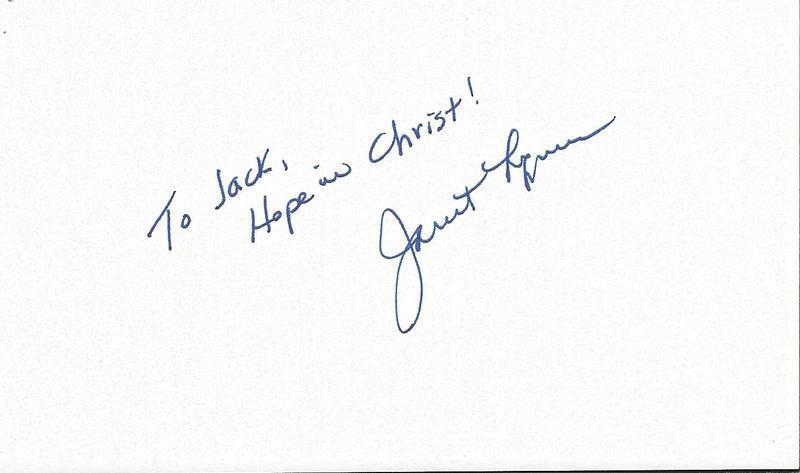 To Jack,
Hope in Christ!
Janet Lynn